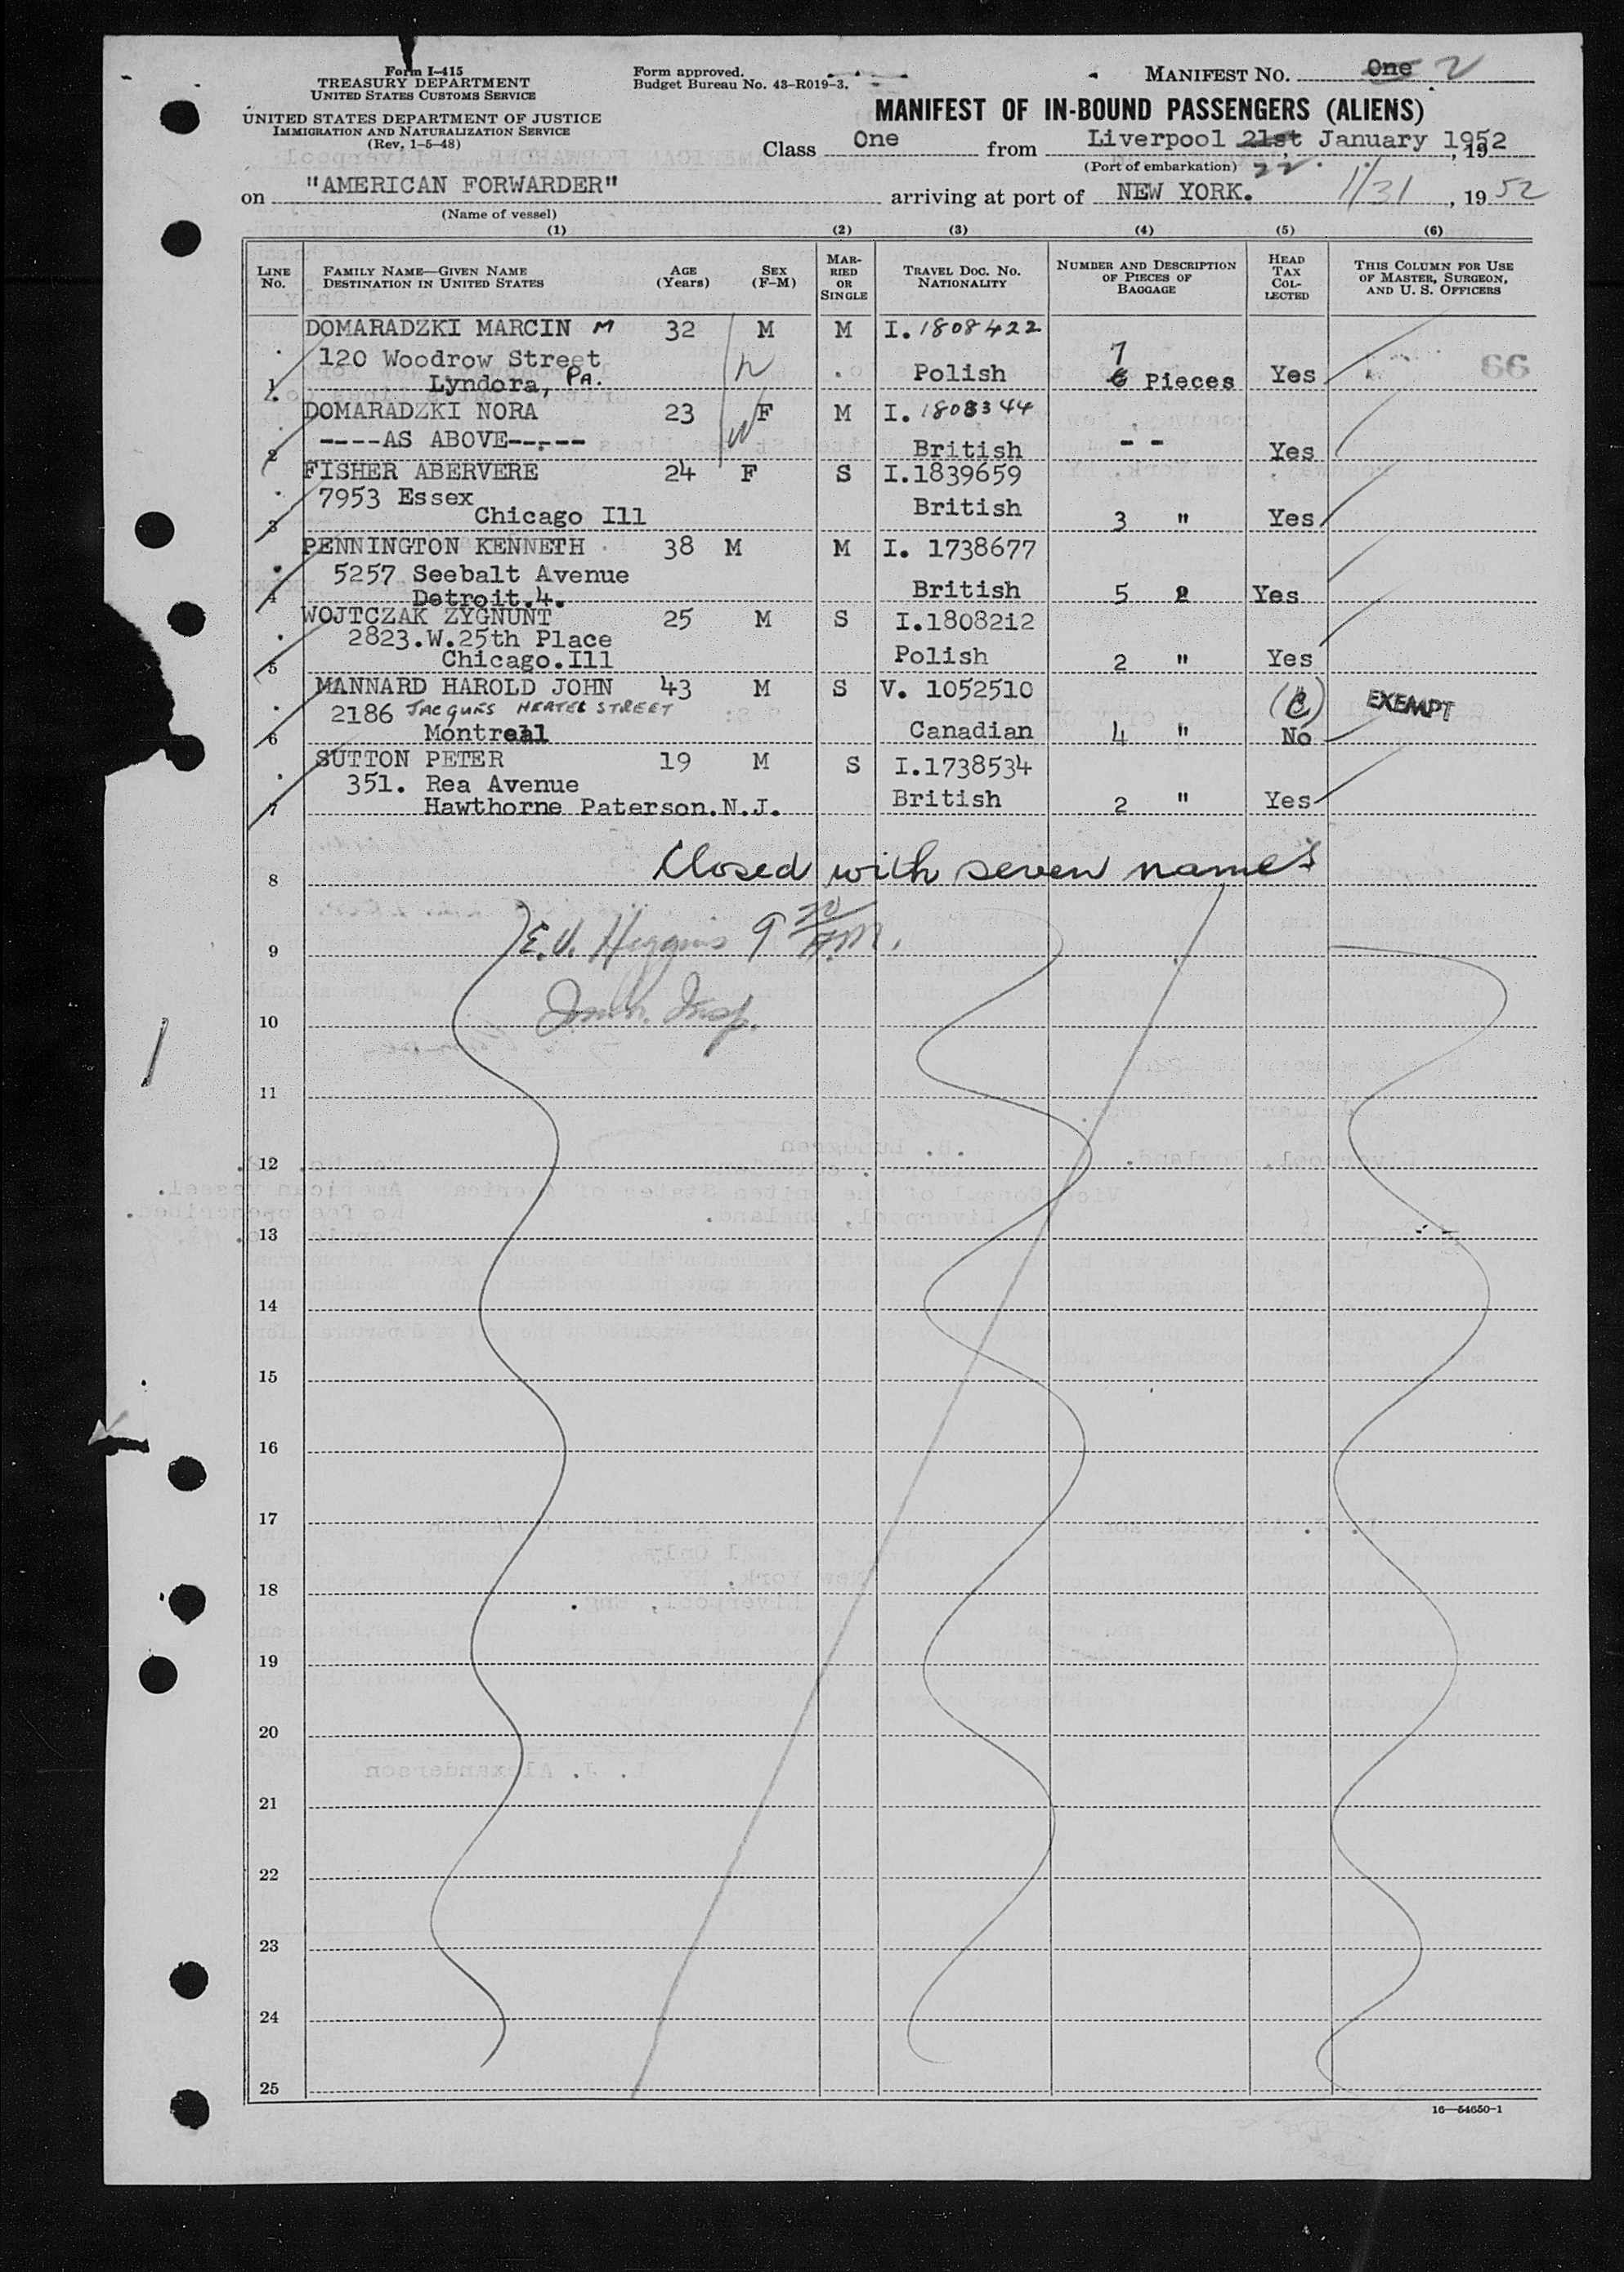 Form I-415
TREASURY DEPARTMENT
UNITED STATES CUSTOMS SERVICE
UNITED STATES DEPARTMENT OF JUSTICE
IMMIGRATION AND NATURALIZATION SERVICE
(Rev. 1-5-48)
Form approved.
Budget Bureau No. 43-R019-3.
MANIFEST NO. One 2
MANIFEST OF IN-BOUND PASSENGERS (ALIENS)
Class One from Liverpool 21st January 1952, 19
(Port of embarkation) 22
on "AMERICAN FORWARDER" arriving at port of NEW YORK. 1/31, 19 52
(Name of vessel)
(1) (2) (3) (4) (5) (6)
LINE No. FAMILY NAME—GIVEN NAME DESTINATION IN UNITED STATES AGE (Years) SEX (F-M) MARRIED OR SINGLE TRAVEL DOC. NO. NATIONALITY NUMBER AND DESCRIPTION OF PIECES OF BAGGAGE HEAD TAX COLLECTED THIS COLUMN FOR USE OF MASTER, SURGEON, AND U. S. OFFICERS
DOMARADZKI MARCIN M 32 M M I. 1808422
120 Woodrow Street 7
1 Lyndora, PA. Polish 6 Pieces Yes
DOMARADZKI NORA 23 F M I. 1808344
----AS ABOVE-----
2 British - - Yes
FISHER ABERVERE 24 F S I.1839659
7953 Essex British
3 Chicago Ill 3 " Yes
PENNINGTON KENNETH 38 M M I. 1738677
5257 Seebalt Avenue
4 Detroit.4. British 5 " Yes
WOJTCZAK ZYGNUNT 25 M S I.1808212
2823.W.25th Place
5 Chicago.Ill Polish 2 " Yes
MANNARD HAROLD JOHN 43 M S V. 1052510 EXEMPT
2186 JACQUES HERTEL STREET
6 Montreal Canadian 4 " No
SUTTON PETER 19 M S I.1738534
351. Rea Avenue
7 Hawthorne Paterson.N.J. British 2 " Yes
Closed with seven names
8
E.V. Higgins 9 30 A.M.
9
Imm. Insp.
10
11
12
13
14
15
16
17
18
19
20
21
22
23
24
25
16—54650-1